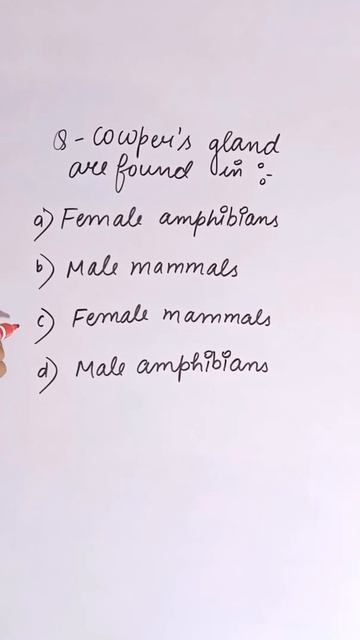 Q - Cowper's gland
are found in :-
a) Female amphibians
b) Male mammals
c) Female mammals
d) Male amphibians